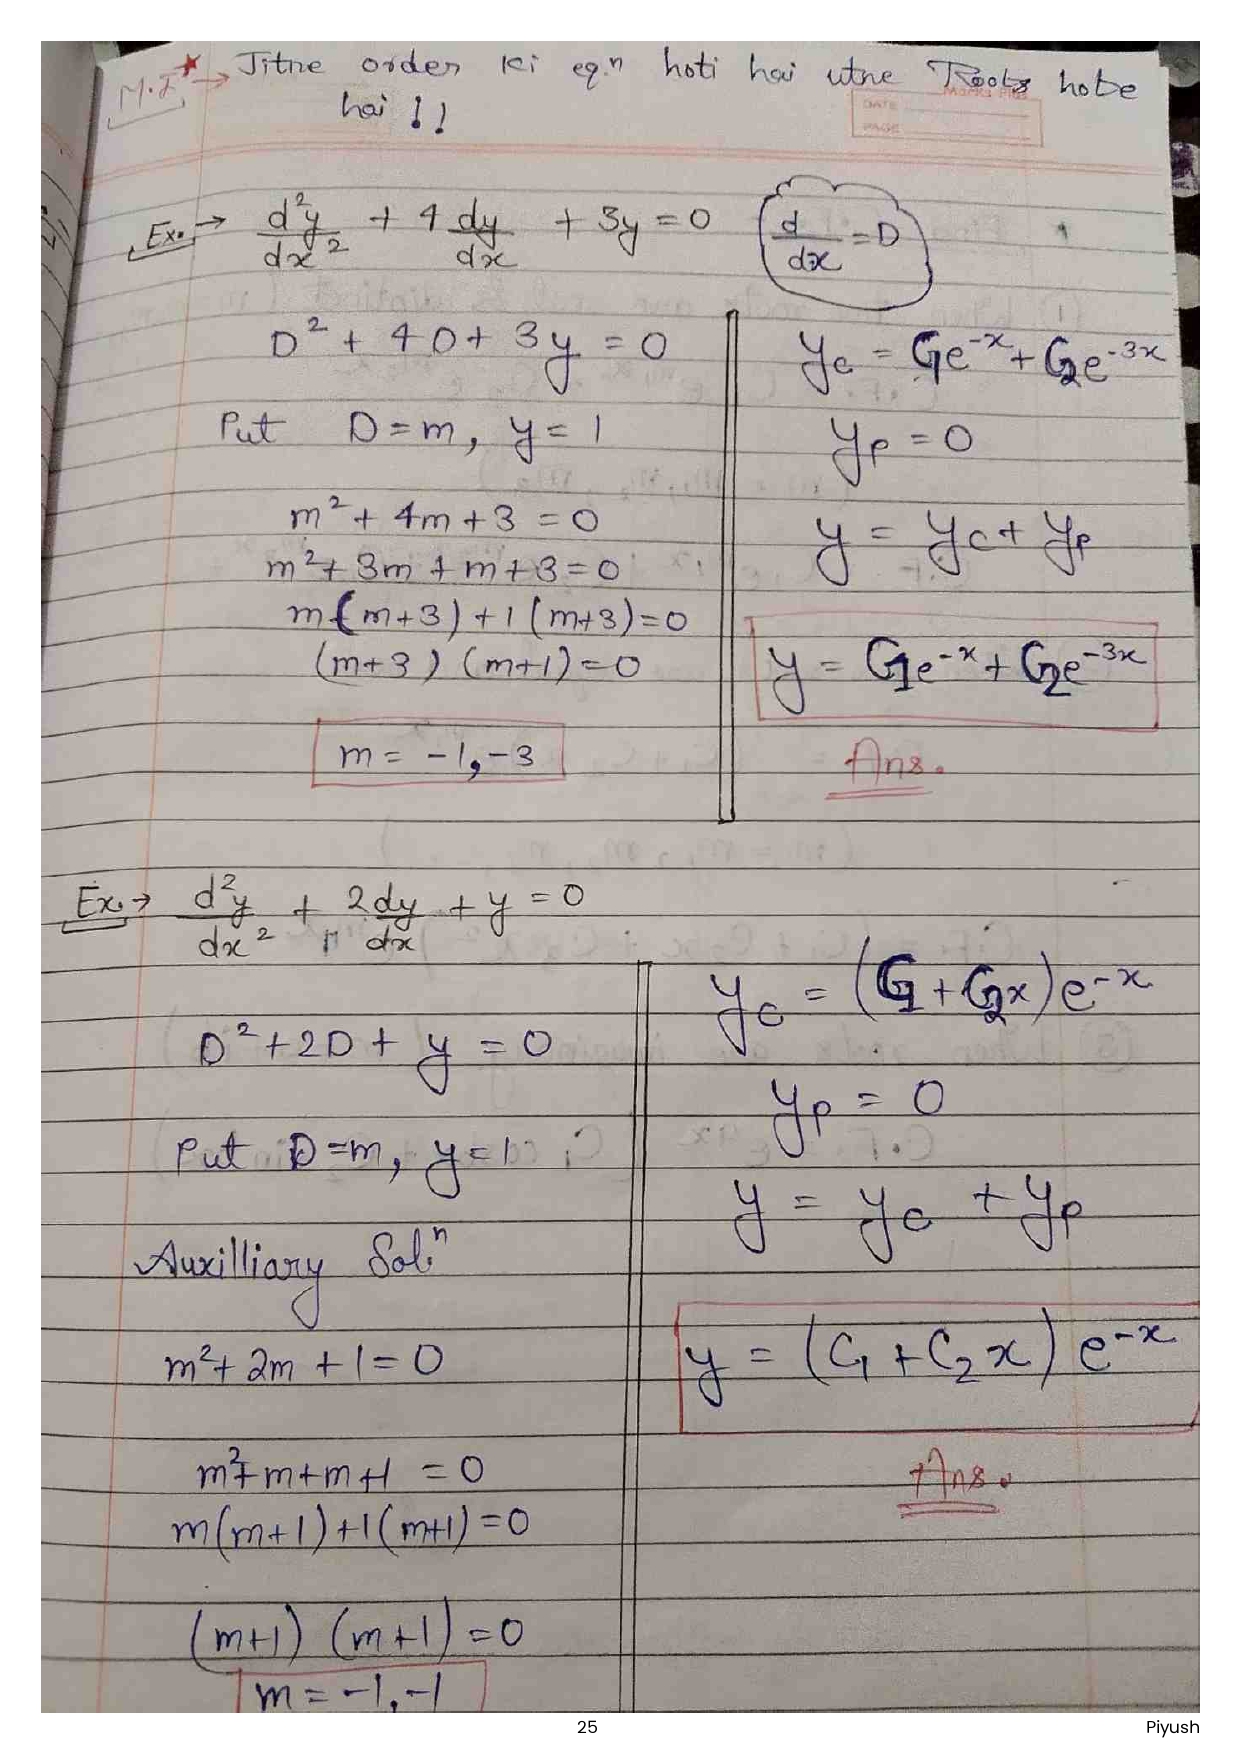 M.I★ → Jitne order ki eq.ⁿ hoti hai utne Roots hote
hai !!
DATE
PAGE
Ex. → d²y/dx² + 4 dy/dx + 3y = 0
d/dx = D
D² + 4D + 3y = 0
Put D = m, y = 1
m² + 4m + 3 = 0
m² + 3m + m + 3 = 0
m(m+3) + 1(m+3) = 0
(m+3) (m+1) = 0
m = -1, -3
yc = C1e^-x + C2e^-3x
yp = 0
y = yc + yp
y = C1e^-x + C2e^-3x
Ans.
Ex. → d²y/dx² + 2dy/dx + y = 0
D² + 2D + y = 0
Put D = m, y = 1
Auxilliary Sol.ⁿ
m² + 2m + 1 = 0
m² + m + m + 1 = 0
m(m+1) + 1(m+1) = 0
(m+1) (m+1) = 0
m = -1, -1
yc = (C1 + C2x) e^-x
yp = 0
y = yc + yp
y = (C1 + C2x) e^-x
Ans.
25
Piyush